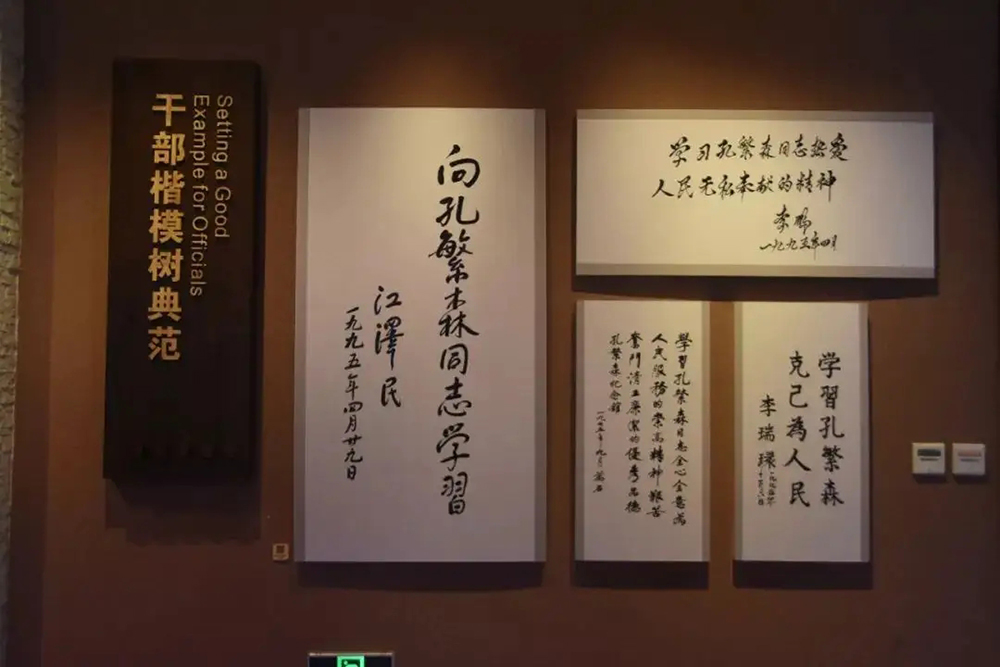 干部楷模树典范
Setting a Good
Example for Officials
向孔繁森同志学習
江澤民
一九九五年四月廿九日
学习孔繁森同志热爱
人民无私奉献的精神
李鹏
一九九五年四月
學習孔繁森同志全心全意為
人民服務的崇高精神艱苦
奮鬥清正廉潔的優秀品德
孔繁森纪念館
一九九五年九月
学習孔繁森
克己為人民
李瑞環